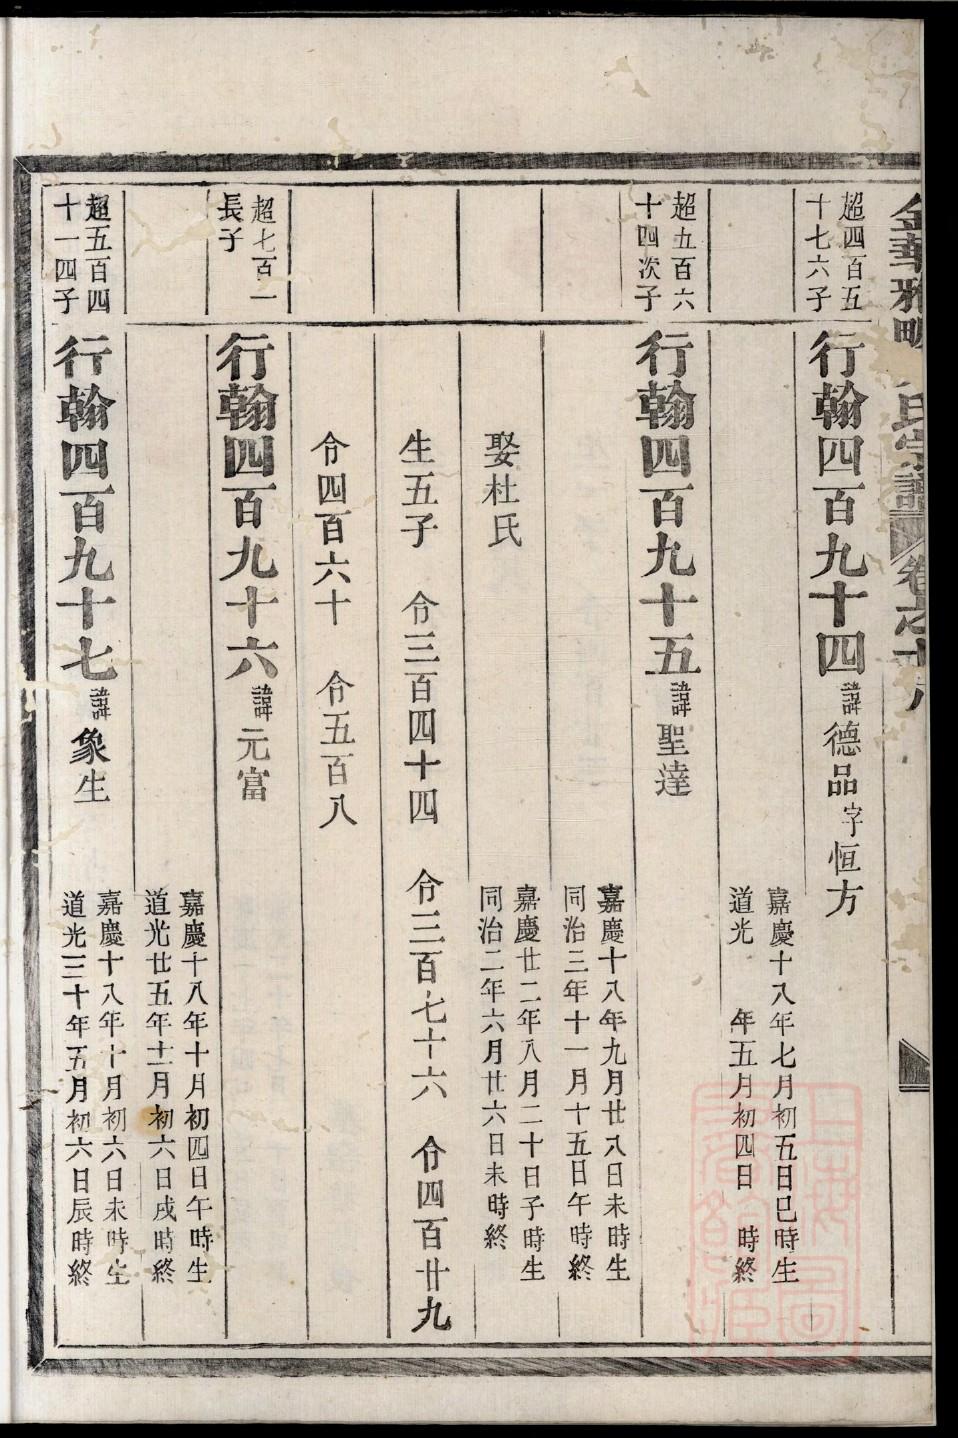 金華雅畈 氏宗譜 卷之十八
超四百五
十七六子
行翰四百九十四 諱德品 字恒方
嘉慶十八年七月初五日巳時生
道光 年五月初四日 時終
超五百六
十四次子
行翰四百九十五 諱聖達
嘉慶十八年九月廿八日未時生
同治三年十一月十五日午時終
娶杜氏
嘉慶廿二年八月二十日子時生
同治二年六月廿六日未時終
生五子 令三百四十四 令三百七十六 令四百廿九
令四百六十 令五百八
超七百一
長子
行翰四百九十六 諱元富
嘉慶十八年十月初四日午時生
道光廿五年十二月初六日戌時終
超五百四
十一四子
行翰四百九十七 諱象生
嘉慶十八年十月初六日未時生
道光三十年五月初六日辰時終